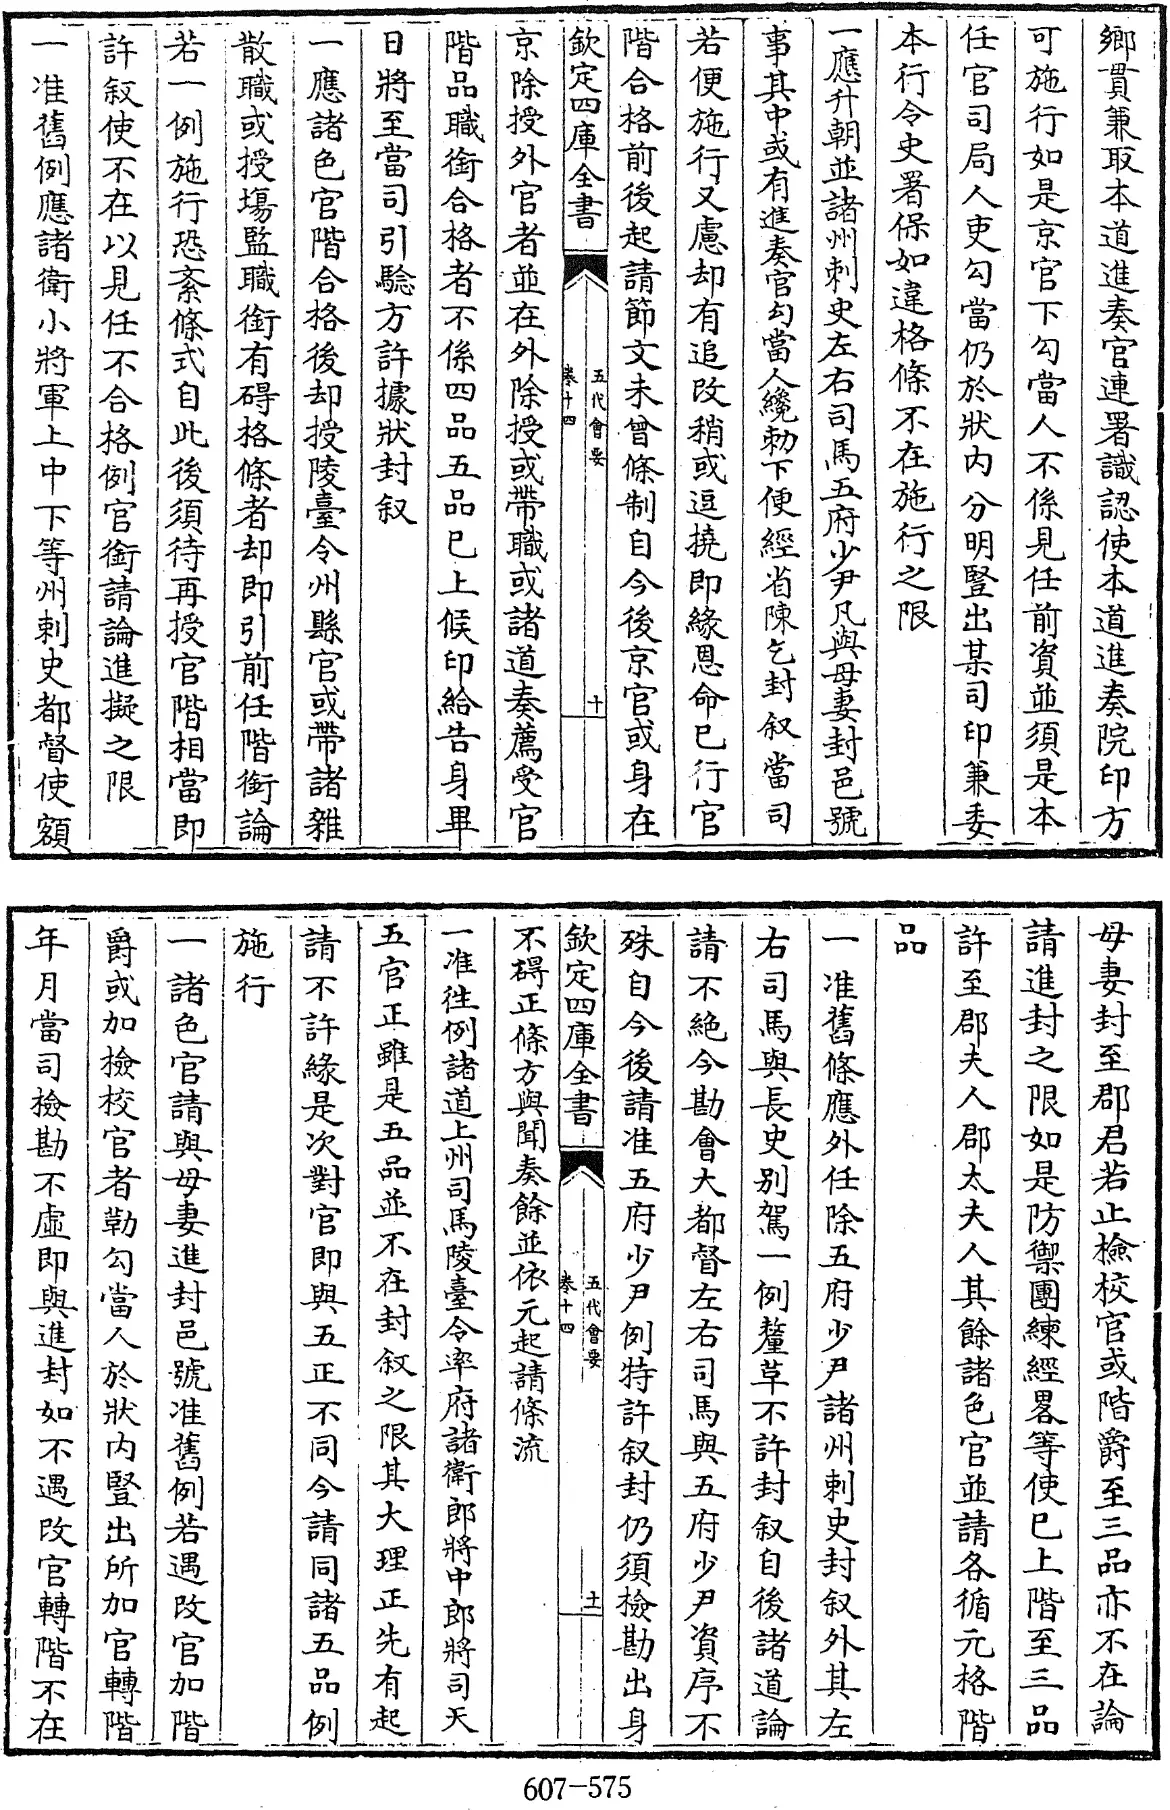 鄉貫兼取本道進奏官連署識認使本道進奏院印方
可施行如是京官下勾當人不係見任前資並須是本
任官司局人吏勾當仍於狀内分明豎出某司印兼委
本行令史署保如違格條不在施行之限
一應升朝並諸州刺史左右司馬五府少尹凡與母妻封邑號
事其中或有進奏官勾當人纔勅下便經省陳乞封叙當司
若便施行又慮却有追改稍或逗撓即緣恩命已行官
階合格前後起請節文未曾條制自今後京官或身在
欽定四庫全書
五代會要
卷十四
十
京除授外官者並在外除授或帶職或諸道奏薦受官
階品職銜合格者不係四品五品已上候印給告身畢
日將至當司引驗方許據狀封叙
一應諸色官階合格後却授陵臺令州縣官或帶諸雜
散職或授場監職銜有碍格條者却即引前任階銜論
若一例施行恐紊條式自此後須待再授官階相當即
許叙使不在以見任不合格例官銜請論進擬之限
一准舊例應諸衛小將軍上中下等州刺史都督使額
母妻封至郡君若止檢校官或階爵至三品亦不在論
請進封之限如是防禦團練經畧等使已上階至三品
許至郡夫人郡太夫人其餘諸色官並請各循元格階
品
一准舊條應外任除五府少尹諸州刺史封叙外其左
右司馬與長史别駕一例釐革不許封叙自後諸道論
請不絶今勘會大都督左右司馬與五府少尹資序不
殊自今後請准五府少尹例特許叙封仍須檢勘出身
欽定四庫全書
五代會要
卷十四
十一
不碍正條方與聞奏餘並依元起請條流
一准往例諸道上州司馬陵臺令率府諸衛郎將中郎將司天
五官正雖是五品並不在封叙之限其大理正先有起
請不許緣是次對官即與五正不同今請同諸五品例
施行
一諸色官請與母妻進封邑號准舊例若遇改官加階
爵或加檢校官者勒勾當人於狀内豎出所加官轉階
年月當司檢勘不虛即與進封如不遇改官轉階不在
607-575